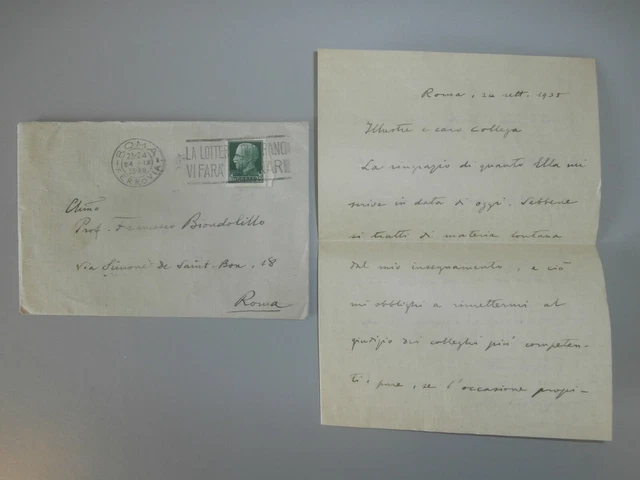 ROMA
FERROVIA
LA LOTTE
VI FARÀ
Chmo
Prof. Francesco Biondolillo
Via Simone de Saint-Bon, 18
Roma
Roma, 24 sett. 1935
Illustre e caro collega
La ringrazio di quanto Ella mi
scrive in data di oggi. Sebbene
si tratti di materia lontana
dal mio insegnamento, e ciò
mi obblighi a rimettermi al
giudizio dei colleghi più competen-
ti, pure, se l'occasione propi-